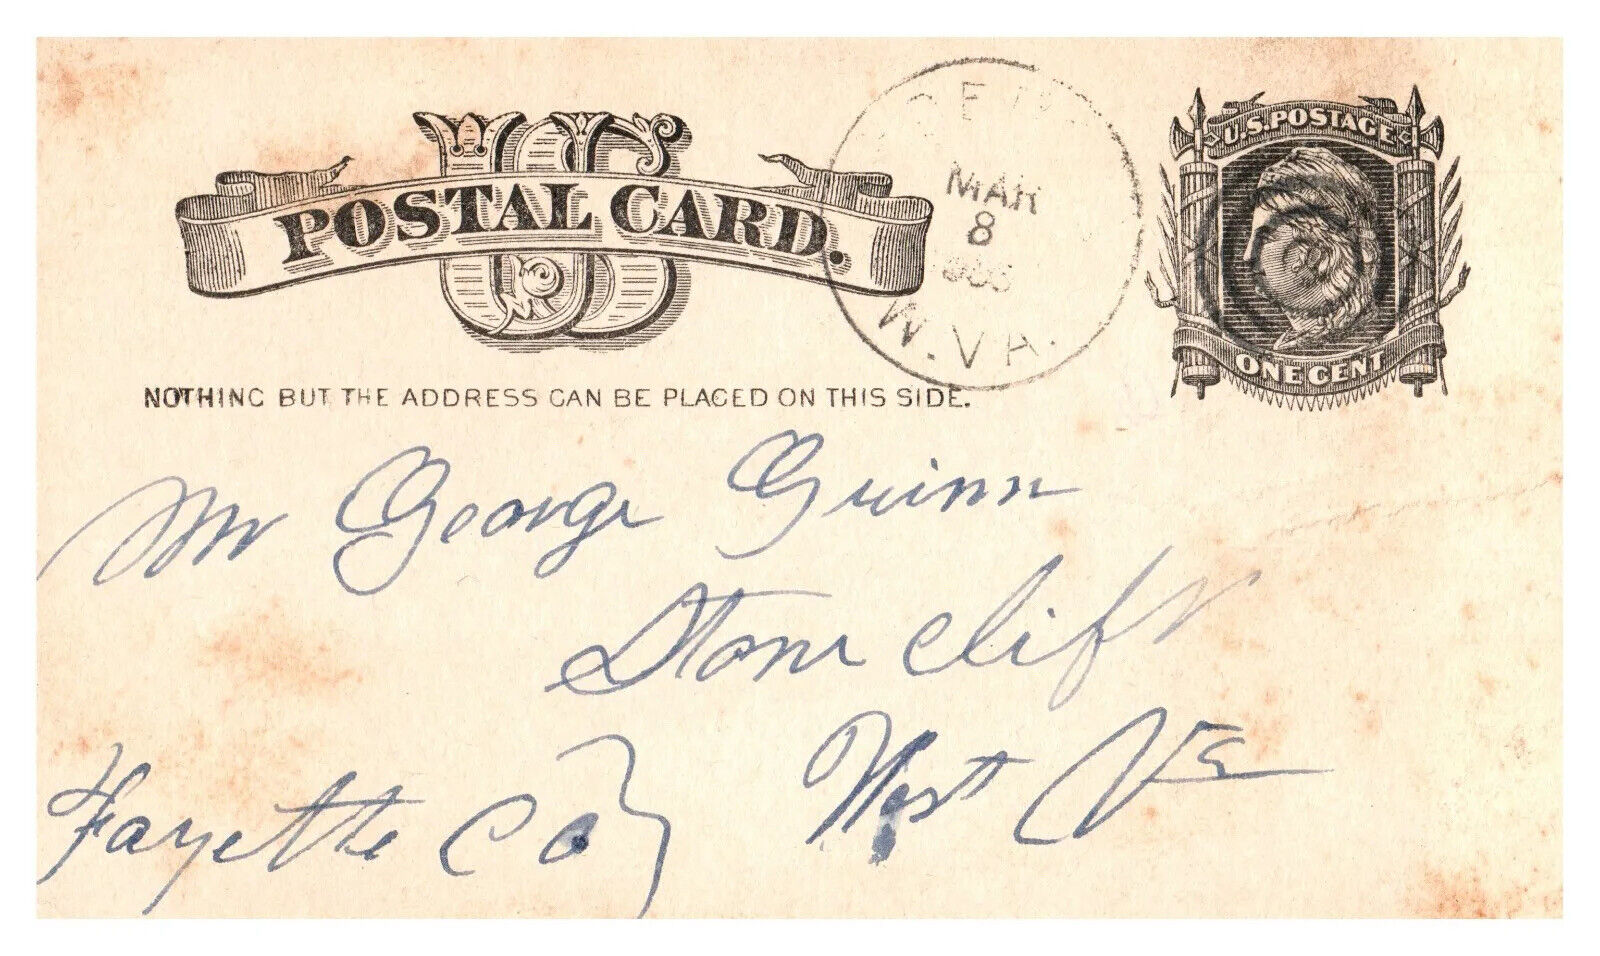 US
POSTAL CARD.
MAR
8
W. VA.
U.S. POSTAGE
ONE CENT
NOTHING BUT THE ADDRESS CAN BE PLACED ON THIS SIDE.
Mr George Guinn
Stone Cliff
Fayette Co West Va